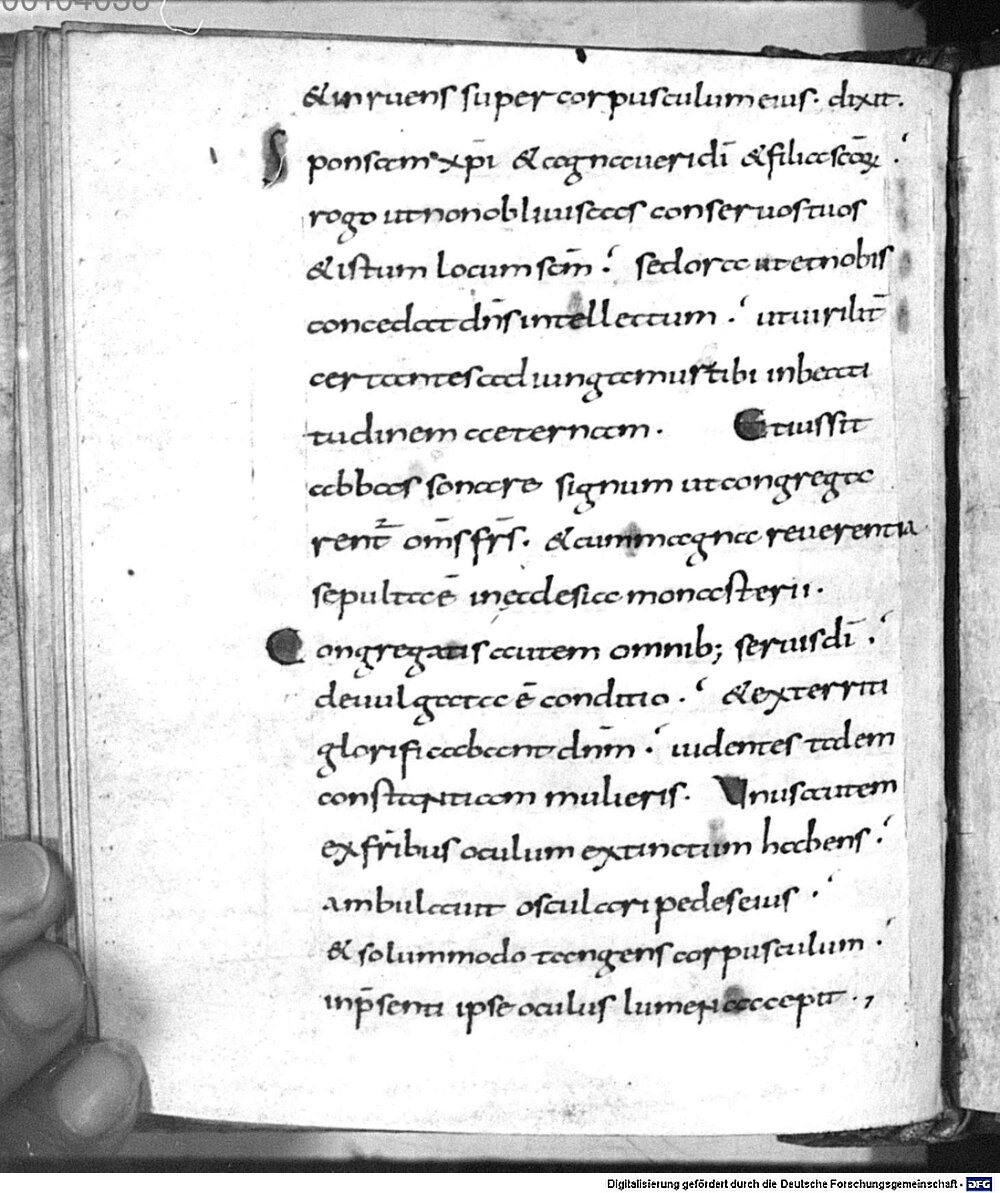 00104058
& inruens super corpusculum eius. dixit.
Sponsam xp̄i & agna ueri dī & filia scōꝝ.
rogo ut non obliuiscas conseruos tuos
& istum locum scm̄. sed ora ut et nobis
concedat dn̄s intellectum. ut uirilit̄
certantes adiungamur tibi in beati
tudinem aeternam. Et iussit
abbas sonare signum ut congrega
rent̄ om̄s frs̄. & cum magna reuerentia
sepulta ē in ęcclesia monasterii.
Congregatis autem omnib; seruis dī.
deuulgata ē conditio. & exterriti
glorificabant dn̄m. uidentes talem
constantiam mulieris. Unus autem
ex frībus oculum extinctum habens.
ambulauit osculari pedes eius.
& solummodo tangens corpusculum.
in p̄senti ipse oculus lumen accepit.,
Digitalisierung gefördert durch die Deutsche Forschungsgemeinschaft - DFG